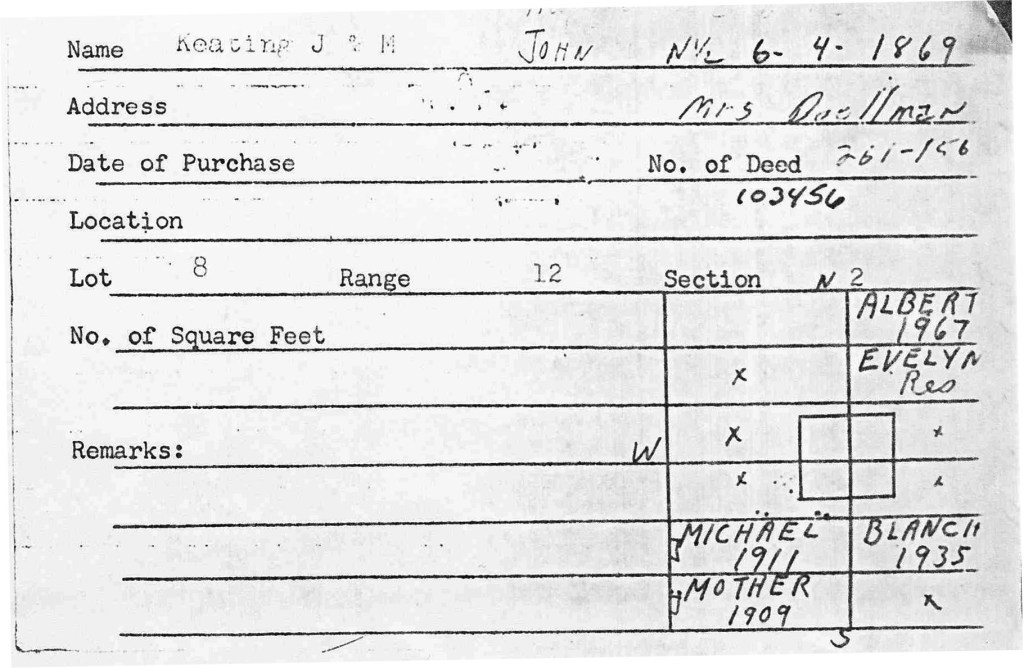 Name Keating J & M JOHN N½ 6-4-1869
Address Mrs Doellman
Date of Purchase No. of Deed 261-156
103456
Location
Lot 8 Range 12 Section N 2
ALBERT
No. of Square Feet 1967
EVELYN
x Res
x x
Remarks: W
x x
MICHAEL BLANCH
1911 1935
MOTHER
1909 x
S